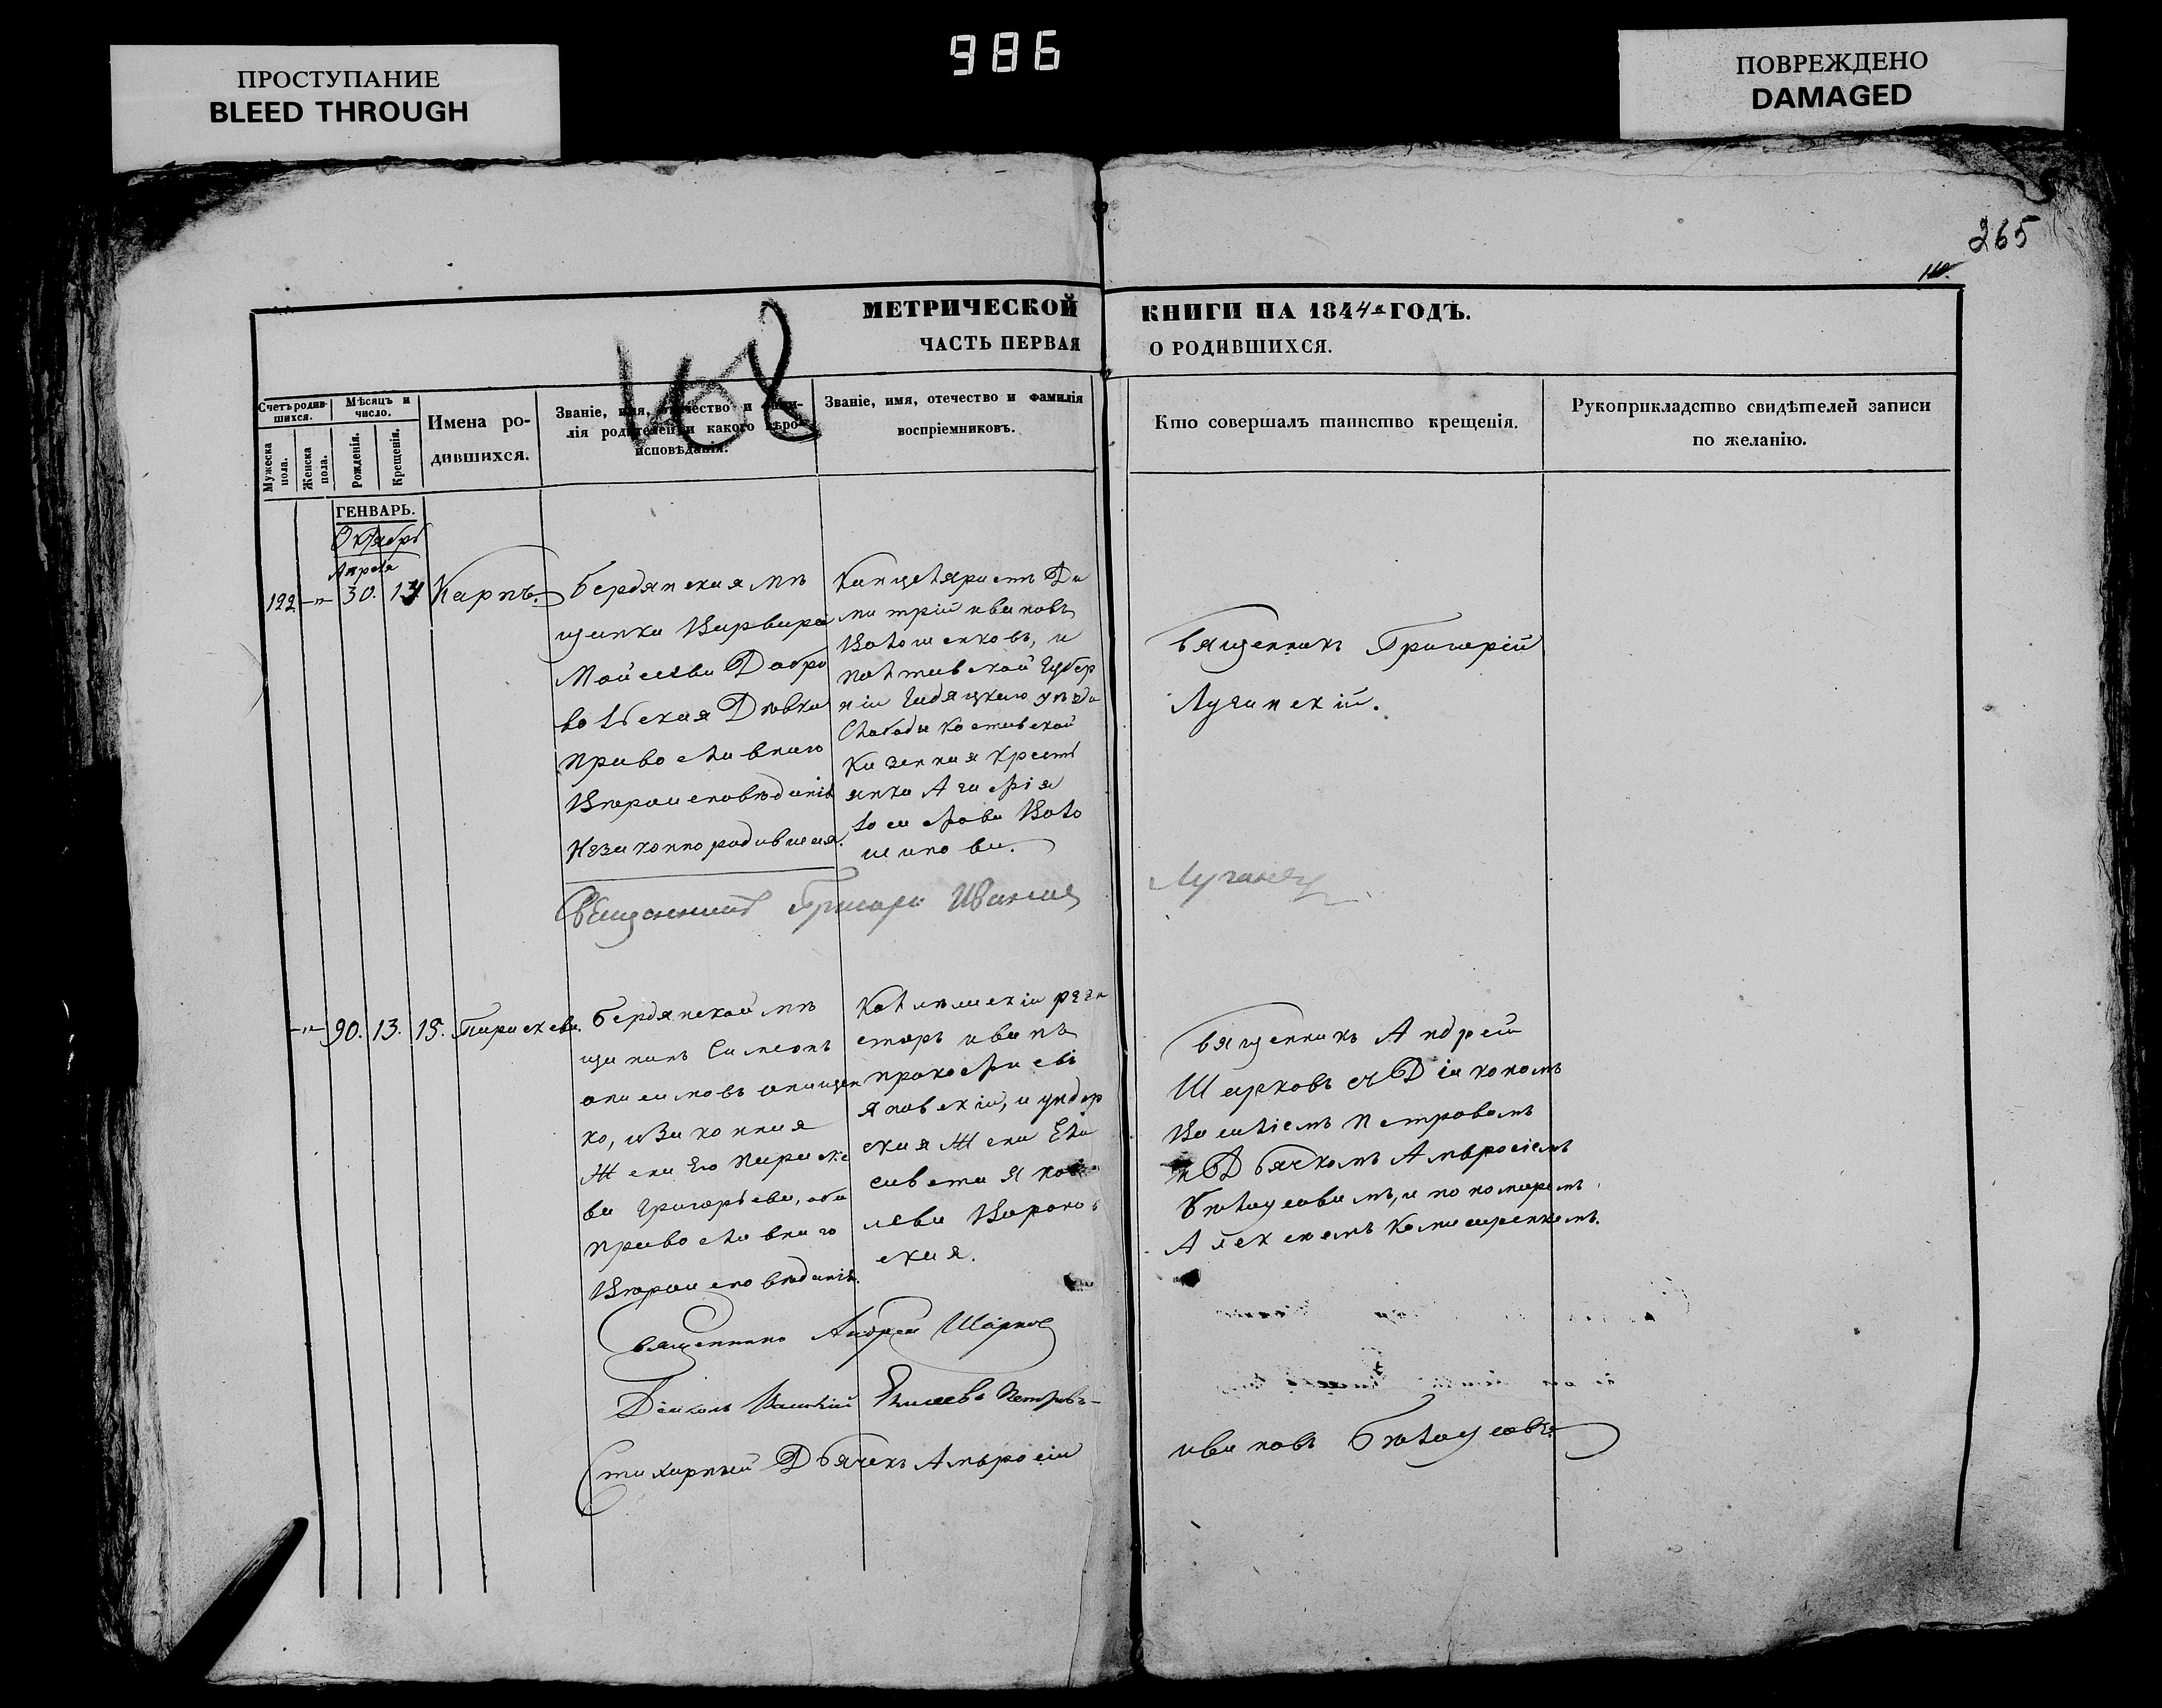 ПРОСТУПАНИЕ
BLEED THROUGH
986
ПОВРЕЖДЕНО
DAMAGED
265
МЕТРИЧЕСКОЙ
ЧАСТЬ ПЕРВАЯ
168
КНИГИ НА 1844й ГОДЪ.
О РОДИВШИХСЯ.
Счетъ родив-
шихся.
Мужеска пола.
Женска пола.
Мѣсяцъ и
число.
Рожденія.
Крещенія.
Имена ро-
дившихся.
Званіе, имя, отчество и фами-
лія родителей и какого вѣро-
исповѣданія.
Званіе, имя, отечество и фамилія
воспріемниковъ.
Кто совершалъ таинство крещенія.
Рукоприкладство свидѣтелей записи
по желанію.
ГЕНВАРЬ.
Октябрь
Апреля
122 -"- 30. Карпъ.
Бердянская мѣ
щанка Варвара
Мойсеева Добро
вольская Дѣвка
православнаго
Вѣроисповѣданія
Незаконнорадившiяся.
Канцеляристъ Ди
митрій Ивановъ
Волошенковъ, и
Полтавской Губер
ніи Гадяцкаго уѣзда
Слободы Костовской
Казенная крестъ
янка Агафія
Волошинова.
Священникъ Григорій
Лучинскій.
Священникъ Григори Иванов
-"- 90. 13. 15. Параскева.
Бердянской мѣ
щанинъ Симеонъ
Анисимовъ Онищен
ко, и Законная
Жена Его Параске
ва Григорьева, оба
православнаго
Вѣроисповѣданія.
Коллежскій реги
сторъ Иванъ
Прокофіевъ
Яновскій, и
ская Жена Ели
савета Яков
лева Воронов
ская.
Священникъ Андрей
Шарковъ съ Діякономъ
Василіемъ Петровымъ
и Дьячкомъ Амвросіемъ
Бѣлоусовымъ, и пономаремъ
Алексеемъ Комисаренкомъ.
Священникъ Андрей Шарковъ
Діяконъ Василій Петровъ
Стихарный Дьячекъ Амвросій
Ивановъ Бѣлоусовъ.